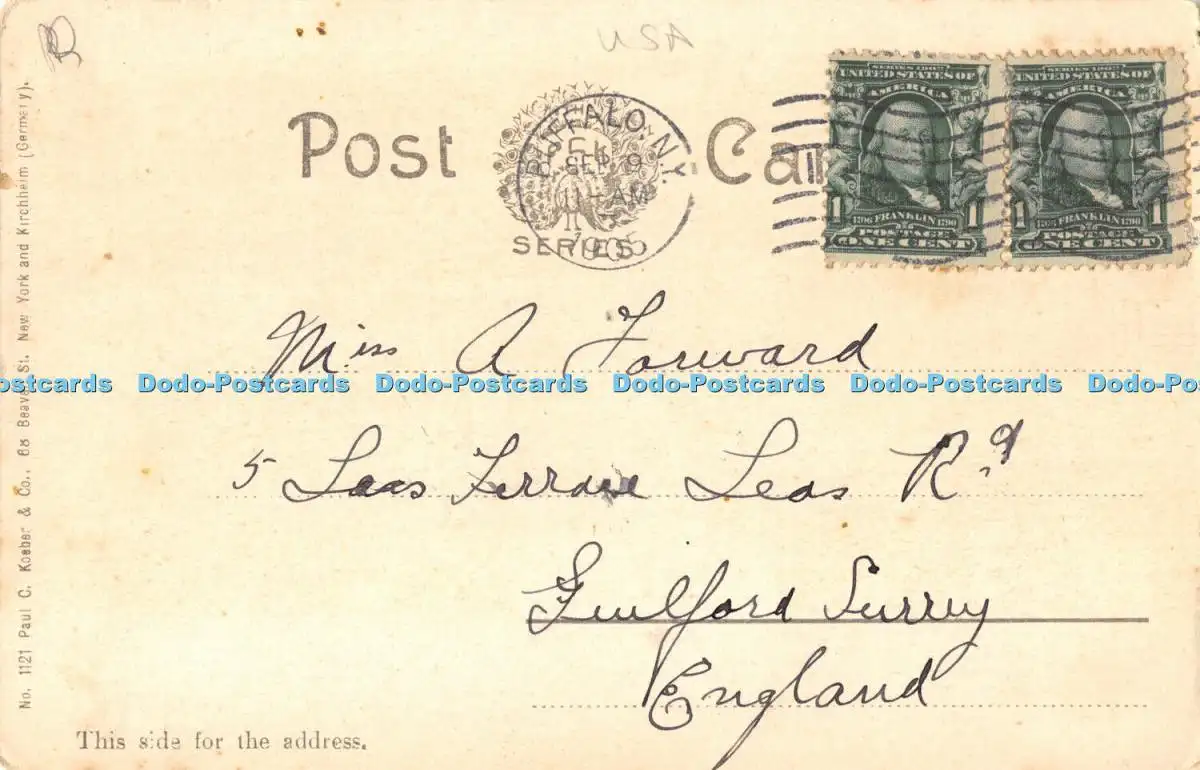 USA
Post Card
BUFFALO, N.Y.
SEP 9
11-AM
1905
SERIES
SERIES 1902
UNITED STATES OF
AMERICA
1 FRANKLIN 1790 1
POSTAGE
ONE CENT
SERIES 1902
UNITED STATES OF
AMERICA
1 FRANKLIN 1790 1
POSTAGE
ONE CENT
Miss A Forward
Dodo-Postcards Dodo-Postcards Dodo-Postcards Dodo-Postcards Dodo-Postcards
5 Leas Terrace Leas Rd
Guilford Surrey
England
This side for the address.
No. 1121 Paul C. Koeber & Co., 68 Beaver St. New York and Kirchheim (Germany).